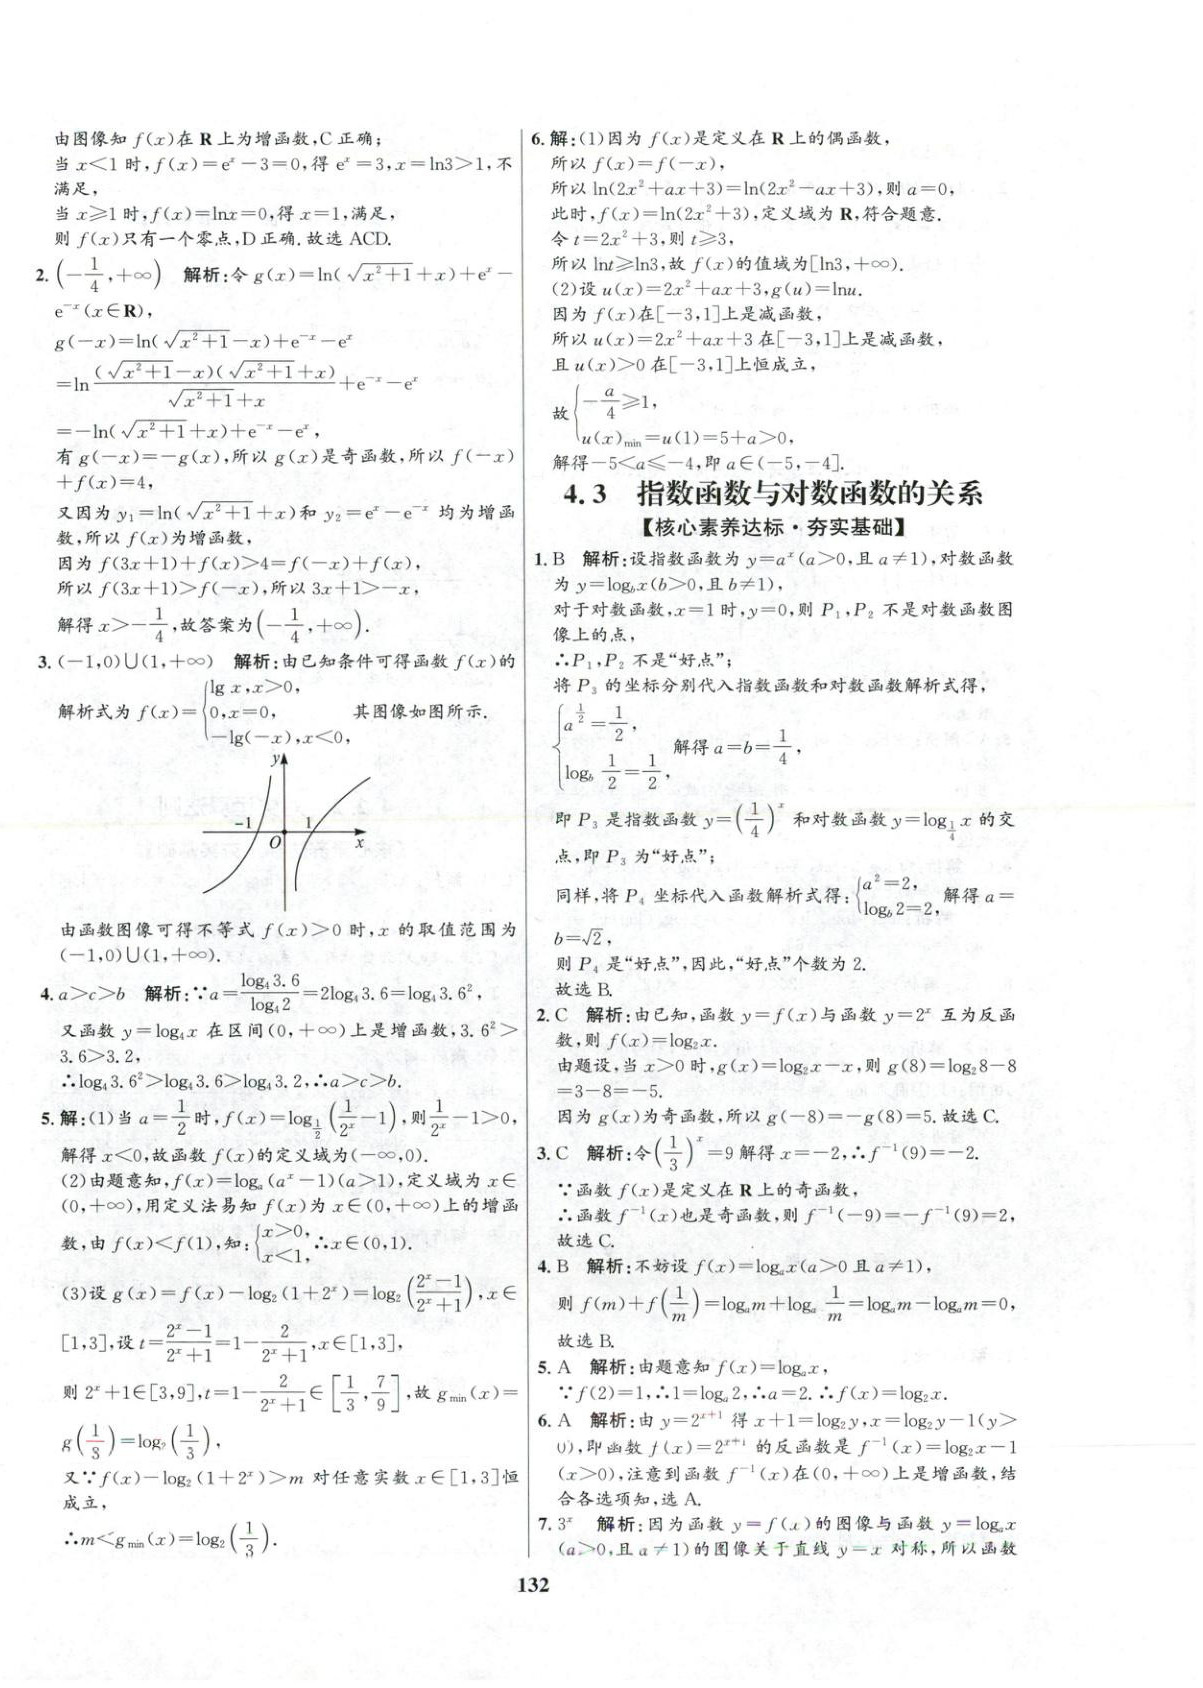 由图像知 f(x)在 R 上为增函数,C 正确;
当 x<1 时,f(x)=eˣ-3=0,得 eˣ=3,x=ln3>1,不
满足,
当 x≥1 时,f(x)=lnx=0,得 x=1,满足,
则 f(x)只有一个零点,D 正确.故选 ACD.
2. (-1/4,+∞) 解析:令 g(x)=ln(√(x²+1)+x)+eˣ-
e⁻ˣ(x∈R),
g(-x)=ln(√(x²+1)-x)+e⁻ˣ-eˣ
=ln (√(x²+1)-x)(√(x²+1)+x)/(√(x²+1)+x) +e⁻ˣ-eˣ
=-ln(√(x²+1)+x)+e⁻ˣ-eˣ,
有 g(-x)=-g(x),所以 g(x)是奇函数,所以 f(-x)
+f(x)=4,
又因为 y₁=ln(√(x²+1)+x)和 y₂=eˣ-e⁻ˣ 均为增函
数,所以 f(x)为增函数,
因为 f(3x+1)+f(x)>4=f(-x)+f(x),
所以 f(3x+1)>f(-x),所以 3x+1>-x,
解得 x>-1/4,故答案为(-1/4,+∞).
3. (-1,0)∪(1,+∞) 解析:由已知条件可得函数 f(x)的
解析式为 f(x)={lg x,x>0, 0,x=0, -lg(-x),x<0, 其图像如图所示.
y
-1 1
O x
由函数图像可得不等式 f(x)>0 时,x 的取值范围为
(-1,0)∪(1,+∞).
4. a>c>b 解析:∵a=log₄3.6/log₄2=2log₄3.6=log₄3.6²,
又函数 y=log₄x 在区间(0,+∞)上是增函数,3.6²>
3.6>3.2,
∴log₄3.6²>log₄3.6>log₄3.2,∴a>c>b.
5. 解:(1)当 a=1/2时,f(x)=log_{1/2}(1/2ˣ-1),则1/2ˣ-1>0,
解得 x<0,故函数 f(x)的定义域为(-∞,0).
(2)由题意知,f(x)=logₐ(aˣ-1)(a>1),定义域为 x∈
(0,+∞),用定义法易知 f(x)为 x∈(0,+∞)上的增函
数,由 f(x)<f(1),知:{x>0, x<1, ∴x∈(0,1).
(3)设 g(x)=f(x)-log₂(1+2ˣ)=log₂((2ˣ-1)/(2ˣ+1)),x∈
[1,3],设 t=(2ˣ-1)/(2ˣ+1)=1-2/(2ˣ+1),x∈[1,3],
则 2ˣ+1∈[3,9],t=1-2/(2ˣ+1)∈[1/3,7/9],故 g_min(x)=
g(1/3)=log₂(1/3),
又∵f(x)-log₂(1+2ˣ)>m 对任意实数 x∈[1,3]恒
成立,
∴m<g_min(x)=log₂(1/3).
6. 解:(1)因为 f(x)是定义在 R 上的偶函数,
所以 f(x)=f(-x),
所以 ln(2x²+ax+3)=ln(2x²-ax+3),则 a=0,
此时,f(x)=ln(2x²+3),定义域为 R,符合题意.
令 t=2x²+3,则 t≥3,
所以 lnt≥ln3,故 f(x)的值域为[ln3,+∞).
(2)设 u(x)=2x²+ax+3,g(u)=lnu.
因为 f(x)在[-3,1]上是减函数,
所以 u(x)=2x²+ax+3 在[-3,1]上是减函数,
且 u(x)>0 在[-3,1]上恒成立,
故{-a/4≥1, u(x)_min=u(1)=5+a>0,
解得-5<a≤-4,即 a∈(-5,-4].
4.3 指数函数与对数函数的关系
【核心素养达标·夯实基础】
1. B 解析:设指数函数为 y=aˣ(a>0,且 a≠1),对数函数
为 y=log_b x(b>0,且 b≠1),
对于对数函数,x=1 时,y=0,则 P₁,P₂ 不是对数函数图
像上的点,
∴P₁,P₂ 不是“好点”;
将 P₃ 的坐标分别代入指数函数和对数函数解析式得,
{a^{1/2}=1/2, log_b 1/2=1/2, 解得 a=b=1/4,
即 P₃ 是指数函数 y=(1/4)ˣ 和对数函数 y=log_{1/4} x 的交
点,即 P₃ 为“好点”;
同样,将 P₄ 坐标代入函数解析式得:{a²=2, log_b 2=2, 解得 a=
b=√2,
则 P₄ 是“好点”,因此,“好点”个数为 2.
故选 B.
2. C 解析:由已知,函数 y=f(x)与函数 y=2ˣ 互为反函
数,则 f(x)=log₂x.
由题设,当 x>0 时,g(x)=log₂x-x,则 g(8)=log₂8-8
=3-8=-5.
因为 g(x)为奇函数,所以 g(-8)=-g(8)=5.故选 C.
3. C 解析:令(1/3)ˣ=9 解得 x=-2,∴f⁻¹(9)=-2.
∵函数 f(x)是定义在 R 上的奇函数,
∴函数 f⁻¹(x)也是奇函数,则 f⁻¹(-9)=-f⁻¹(9)=2,
故选 C.
4. B 解析:不妨设 f(x)=logₐx(a>0 且 a≠1),
则 f(m)+f(1/m)=logₐm+logₐ 1/m=logₐm-logₐm=0,
故选 B.
5. A 解析:由题意知 f(x)=logₐx,
∵f(2)=1,∴1=logₐ2,∴a=2.∴f(x)=log₂x.
6. A 解析:由 y=2ˣ⁺¹ 得 x+1=log₂y,x=log₂y-1(y>
0),即函数 f(x)=2ˣ⁺¹ 的反函数是 f⁻¹(x)=log₂x-1
(x>0),注意到函数 f⁻¹(x)在(0,+∞)上是增函数,结
合各选项知,选 A.
7. 3ˣ 解析:因为函数 y=f(x)的图像与函数 y=logₐx
(a>0,且 a≠1)的图像关于直线 y=x 对称,所以函数
132